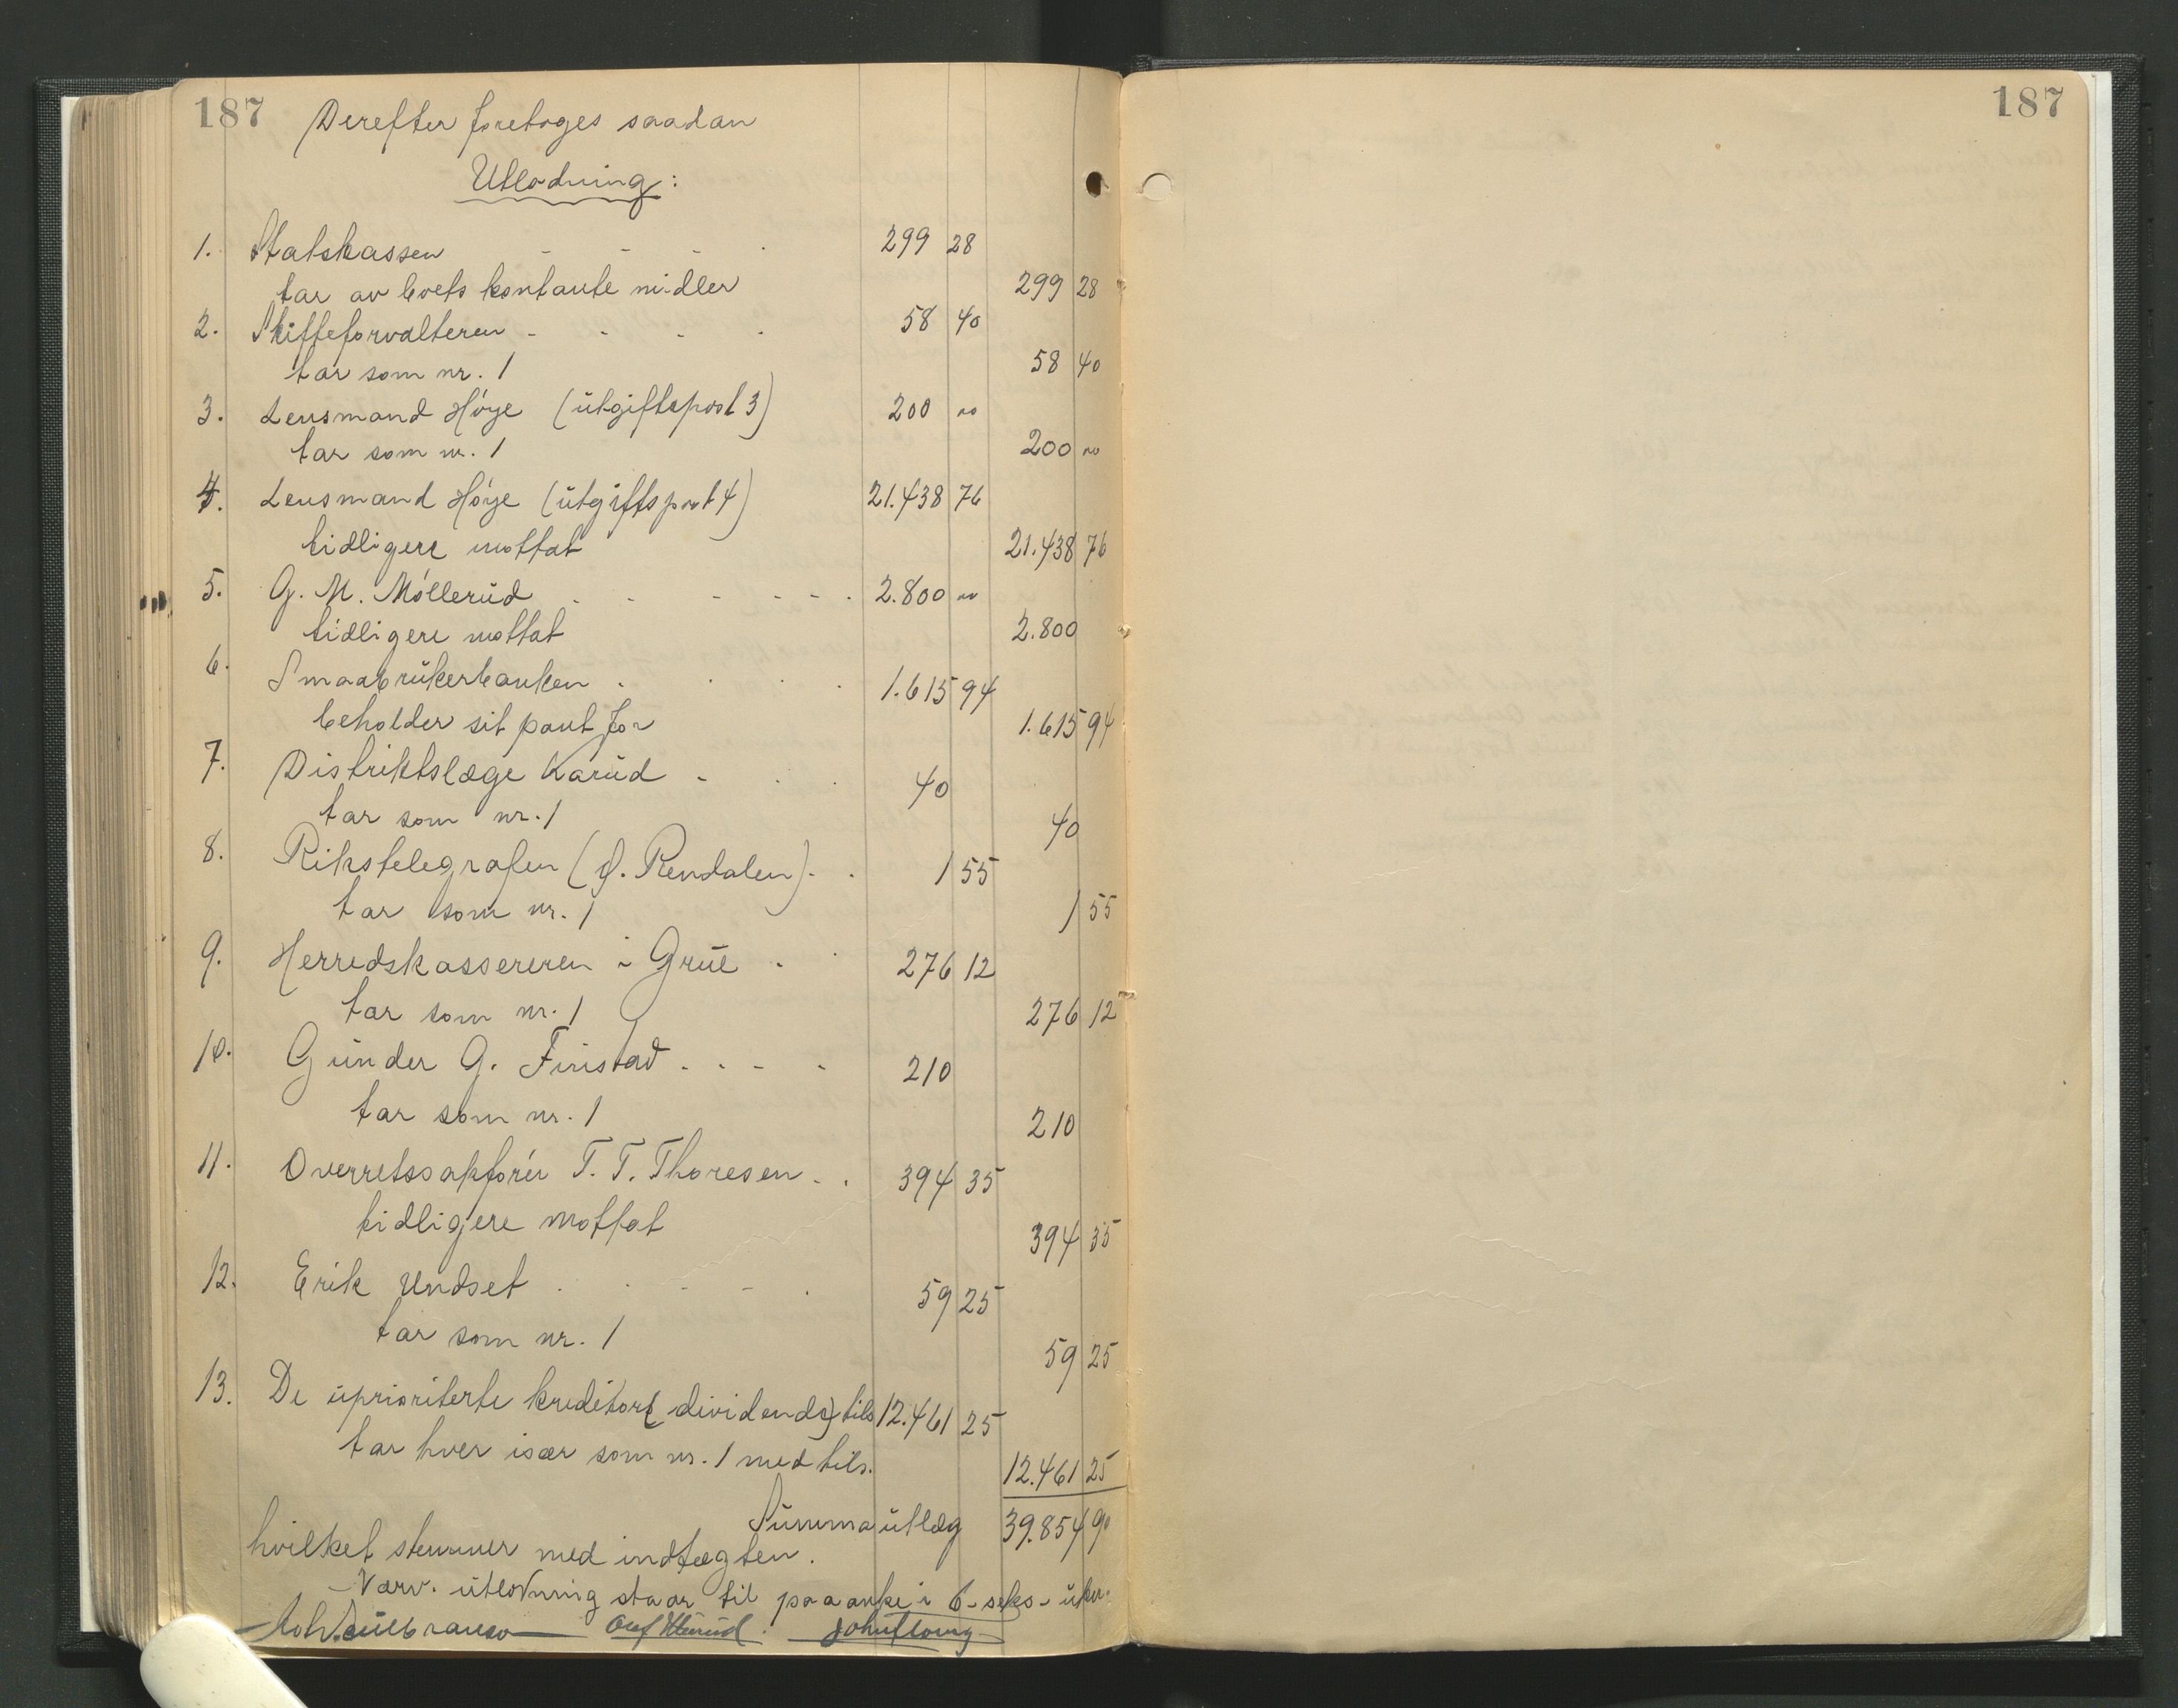 187
Derefter foretages saadan
Utlodning:
1. Statskassen - - - . 299 28
tar av boets kontante midler 299 28
2. Skifteforvalteren - - - . 58 40
tar som nr. 1 58 40
3. Lensmand Høye (utgiftspost 3) 200 "
tar som nr. 1 200 "
4. Lensmand Høye (utgiftspost 4) 21.438 76
tidligere mottat 21.438 76
5. G. M. Møllerud - - - - - - 2.800 "
tidligere mottat 2.800
6. Smaabrukerbanken . . . . 1.615 94
beholder sit pant for 1.615 94
7. Distriktslæge Karud - . . 40
tar som nr. 1 40
8. Rikstelegrafen (Ø. Rendalen) . . 1 55
tar som nr. 1 1 55
9. Herredskassereren i Grue . . 276 12
tar som nr. 1 276 12
10. Gunder G. Finstad . . - - 210
tar som nr. 1 210
11. Overretssakfører T. T. Thoresen . . 394 35
tidligere mottat 394 35
12. Erik Undset . . - - . 59 25
tar som nr. 1 59 25
13. De uprioriterte kreditorer (dividende) tils 12.461 25
tar hver især som nr. 1 med tils. 12.461 25
Summa utlæg 39.854 90
hvilket stemmer med indtægten.
Nærv. utlodning staar til paaanke i 6 - seks - uker.
Olaf
187